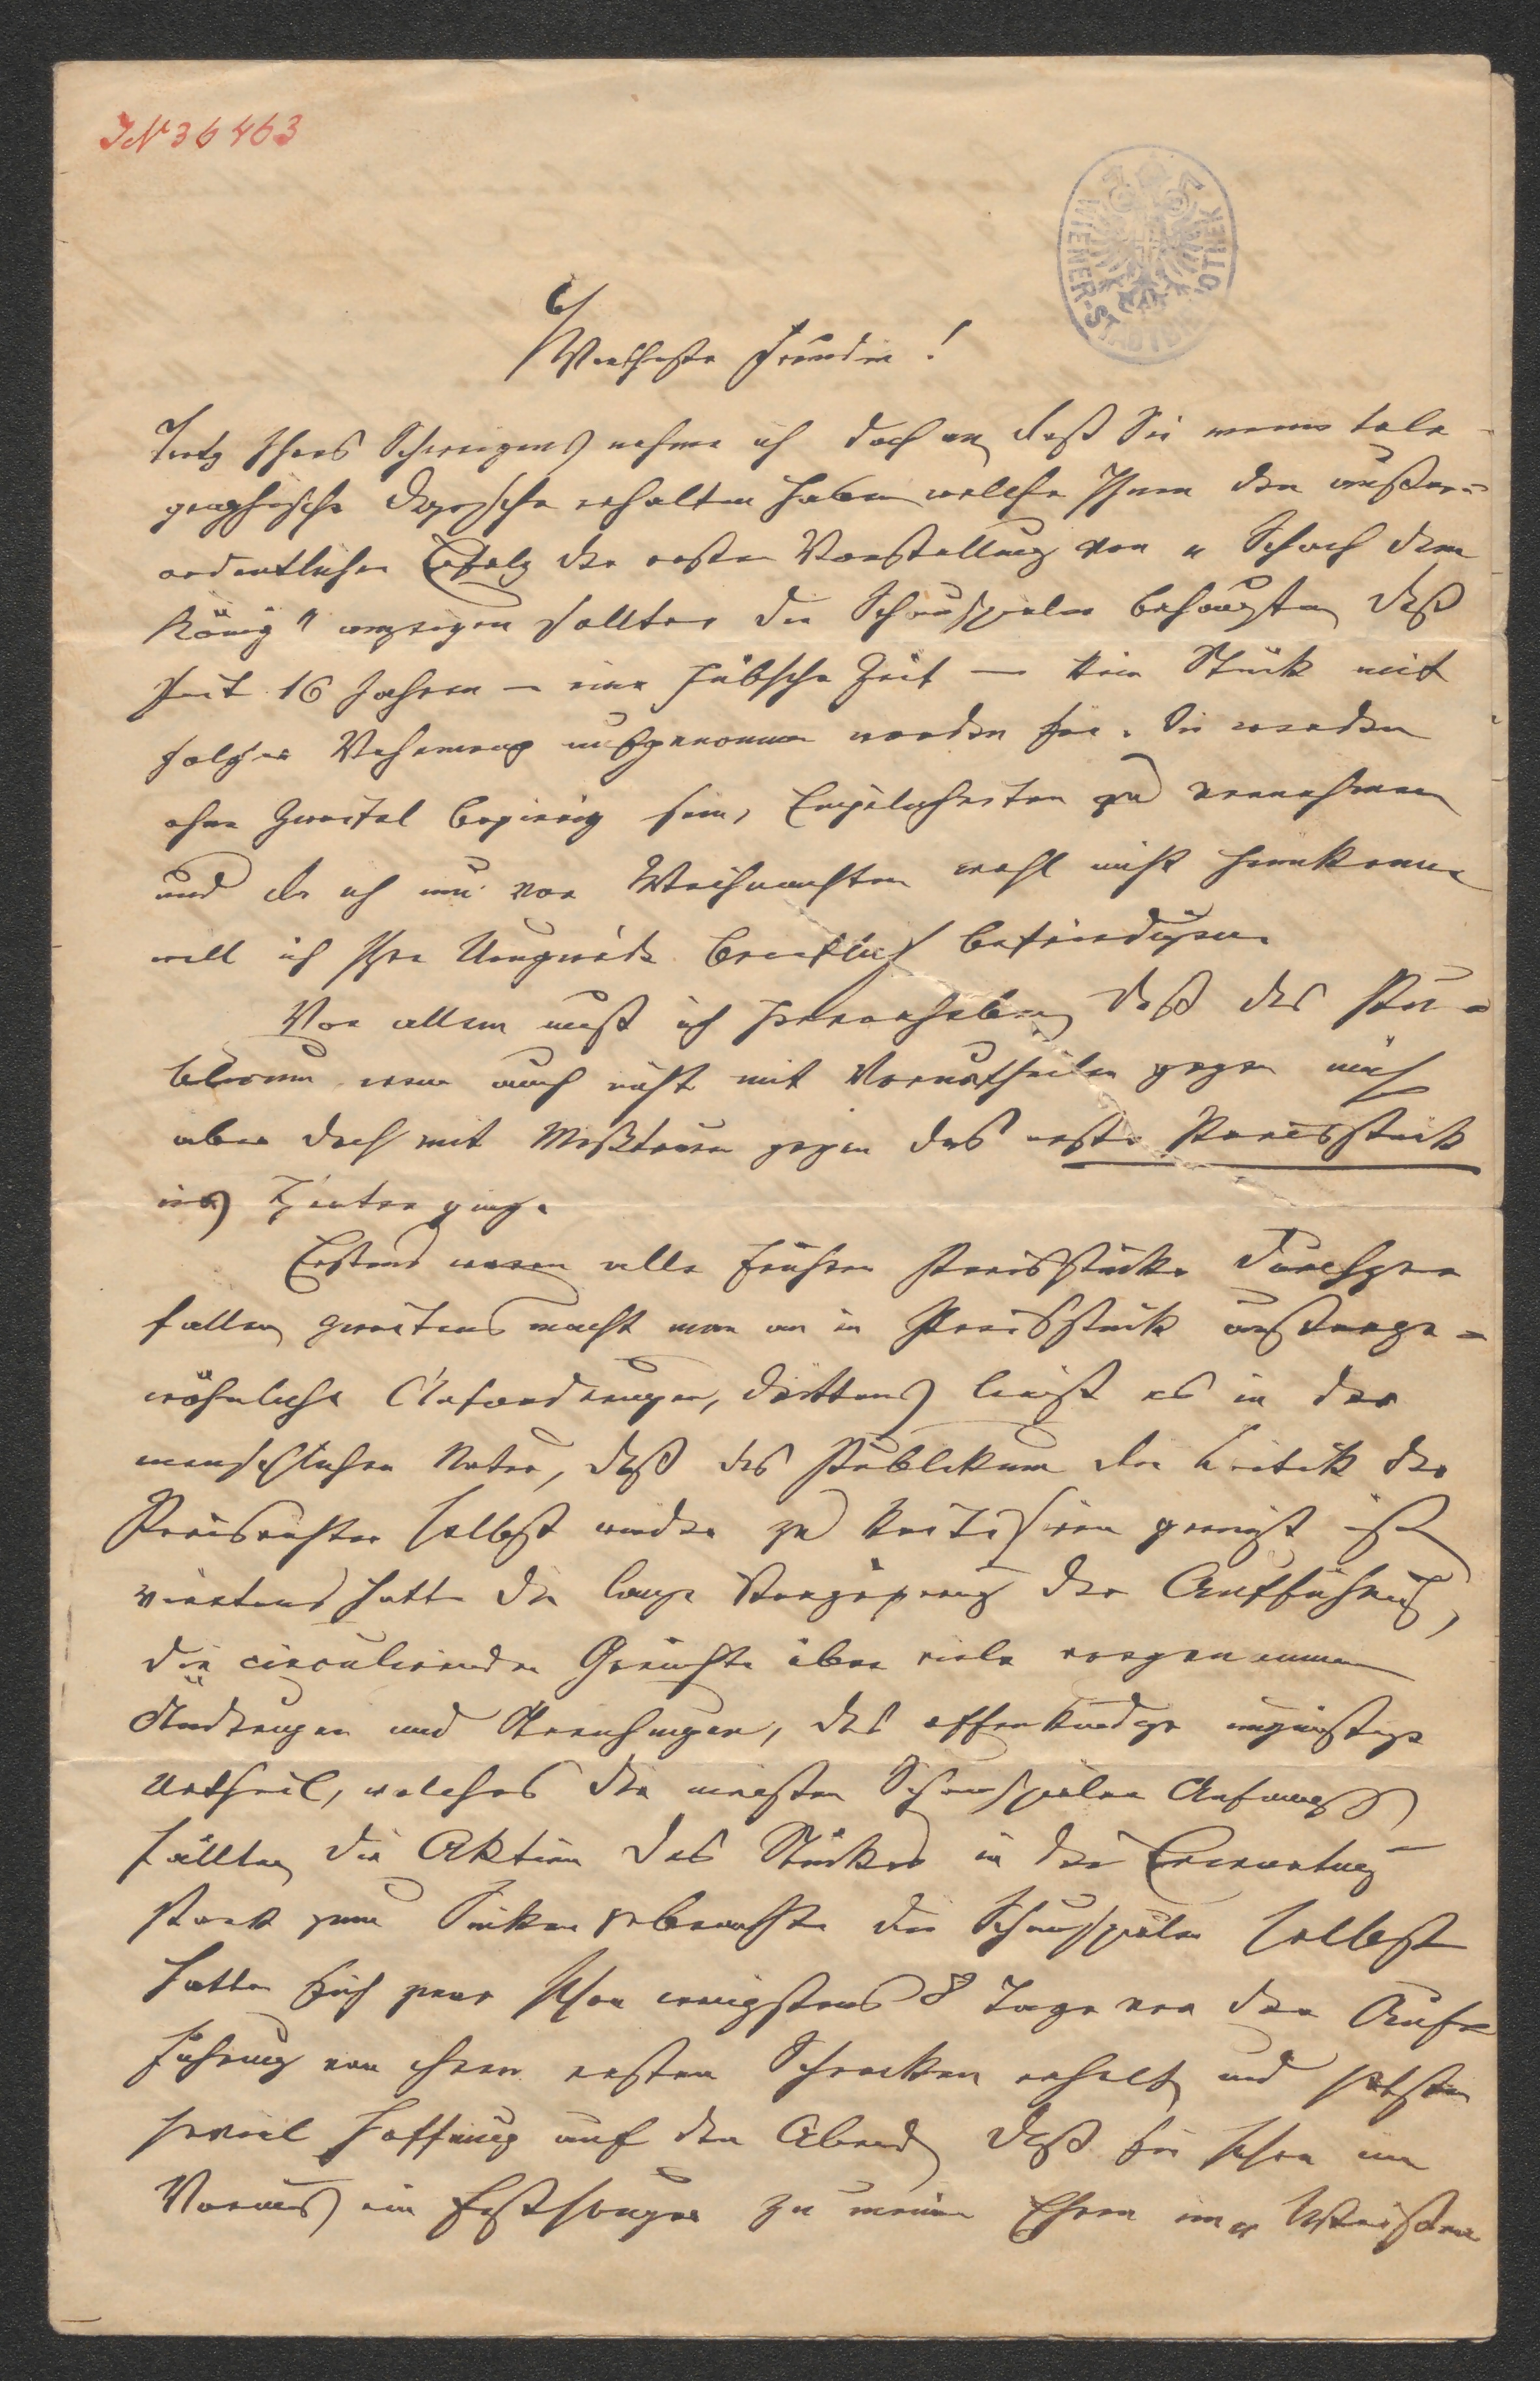 IN 36463
WIENER STADTBIBLIOTHEK
Wertheste Freundin!
Trotz Ihres Schweigens nehme ich doch an, daß Sie meine tele-
graphische Depesche erhalten haben, welche Ihnen den außer-
ordentlichen Erfolg der ersten Vorstellung von „Schach dem
König" anzeigen sollte. Die Schauspieler behaupten, daß
seit 16 Jahren – eine hübsche Zeit – kein Stück mit
solcher Vehemenz aufgenommen worden sei. Sie werden
ohne Zweifel begierig sein, Einzelheiten zu vernehmen
und da ich nun vor Weihnachten wohl nicht hinkomme
will ich Ihre Neugierde brieflich befriedigen.
Vor allem muß ich hervorheben, daß das Pu-
blicum wenn auch nicht mit Vorurtheilen gegen mich
aber doch mit Mißtrauen gegen das erste Preisstück
ins Theater ging.
Erstens waren alle frühern Preisstücke durchge-
fallen, zweitens macht man an ein Preisstück außerge-
wöhnliche Anforderungen, drittens liegt es in der
menschlichen Natur, daß das Publikum die Kritik der
Preisrichter selbst wieder zu kritisiren geneigt ist,
viertens hatte die lange Verzögerung der Aufführung,
die circulirenden Gerüchte über viele vorgenommene
Änderungen und Streichungen, das offenkundige ungünstige
Urtheil, welches die meisten Schauspieler Anfangs
fällten, die Aktien des Stückes in der Erwartung
stark zum Sinken gebracht. Die Schauspieler selbst
hatten sich zwar schon wenigstens 8 Tage vor der Auf-
führung von ihrem ersten Schrecken erholt und setzten
soviel Hoffnung auf den Abend, daß sie schon im
Voraus ein Festsouper zu meinen Ehren im „Weißen